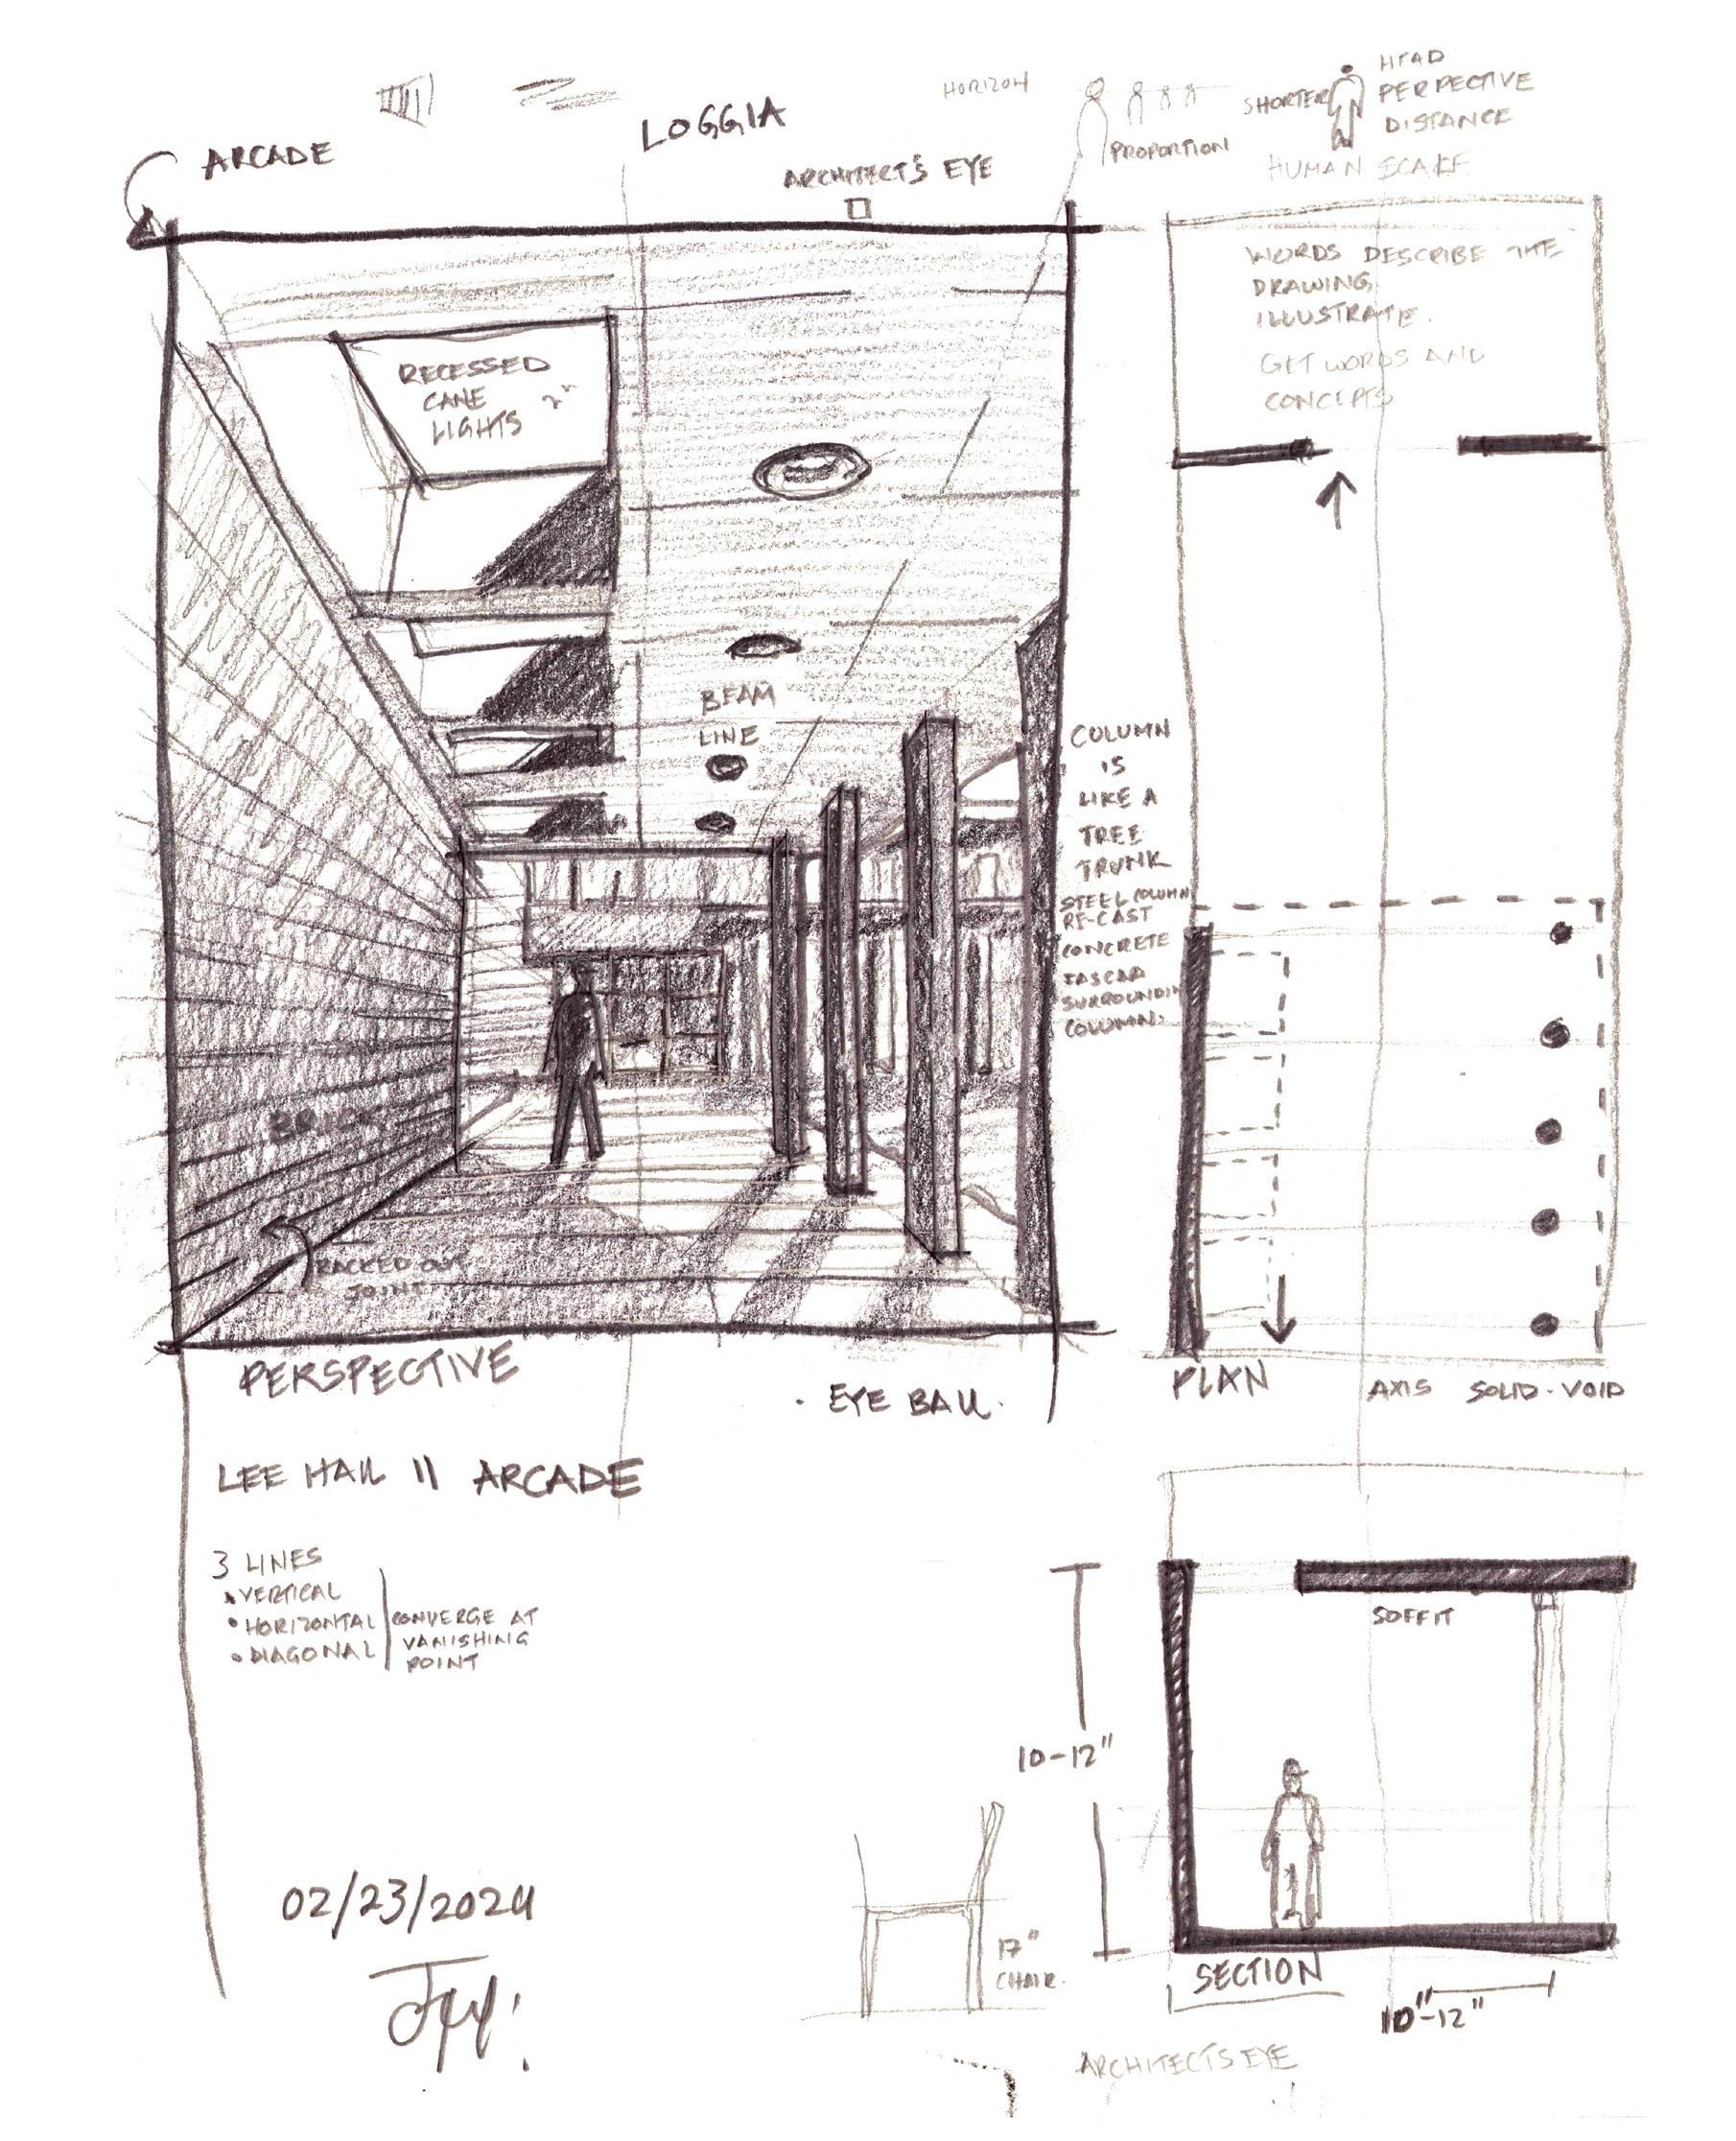 HORIZON
HEAD
PERPECTIVE
DISTANCE
SHORTER
PROPORTION
HUMAN SCALE
LOGGIA
ARCADE
ARCHITECT'S EYE
WORDS DESCRIBE THE
DRAWING
ILLUSTRATE.
GET WORDS AND
CONCEPTS
RECESSED
CANE
LIGHTS
2"
BEAM
LINE
COLUMN
IS
LIKE A
TREE
TRUNK
STEEL COLUMN
RE-CAST
CONCRETE
SURROUNDIN
COLUMN.
BRICK
RACKED OUT
JOINT
PERSPECTIVE
. EYE BALL.
PLAN
AXIS
SOLID - VOID
LEE HALL II ARCADE
3 LINES
• VERTICAL
• HORIZONTAL
• DIAGONAL
CONVERGE AT
VANISHING
POINT
SOFFIT
10-12"
17"
CHAIR.
SECTION
10"-12"
02/23/2024
ARCHITECTS EYE